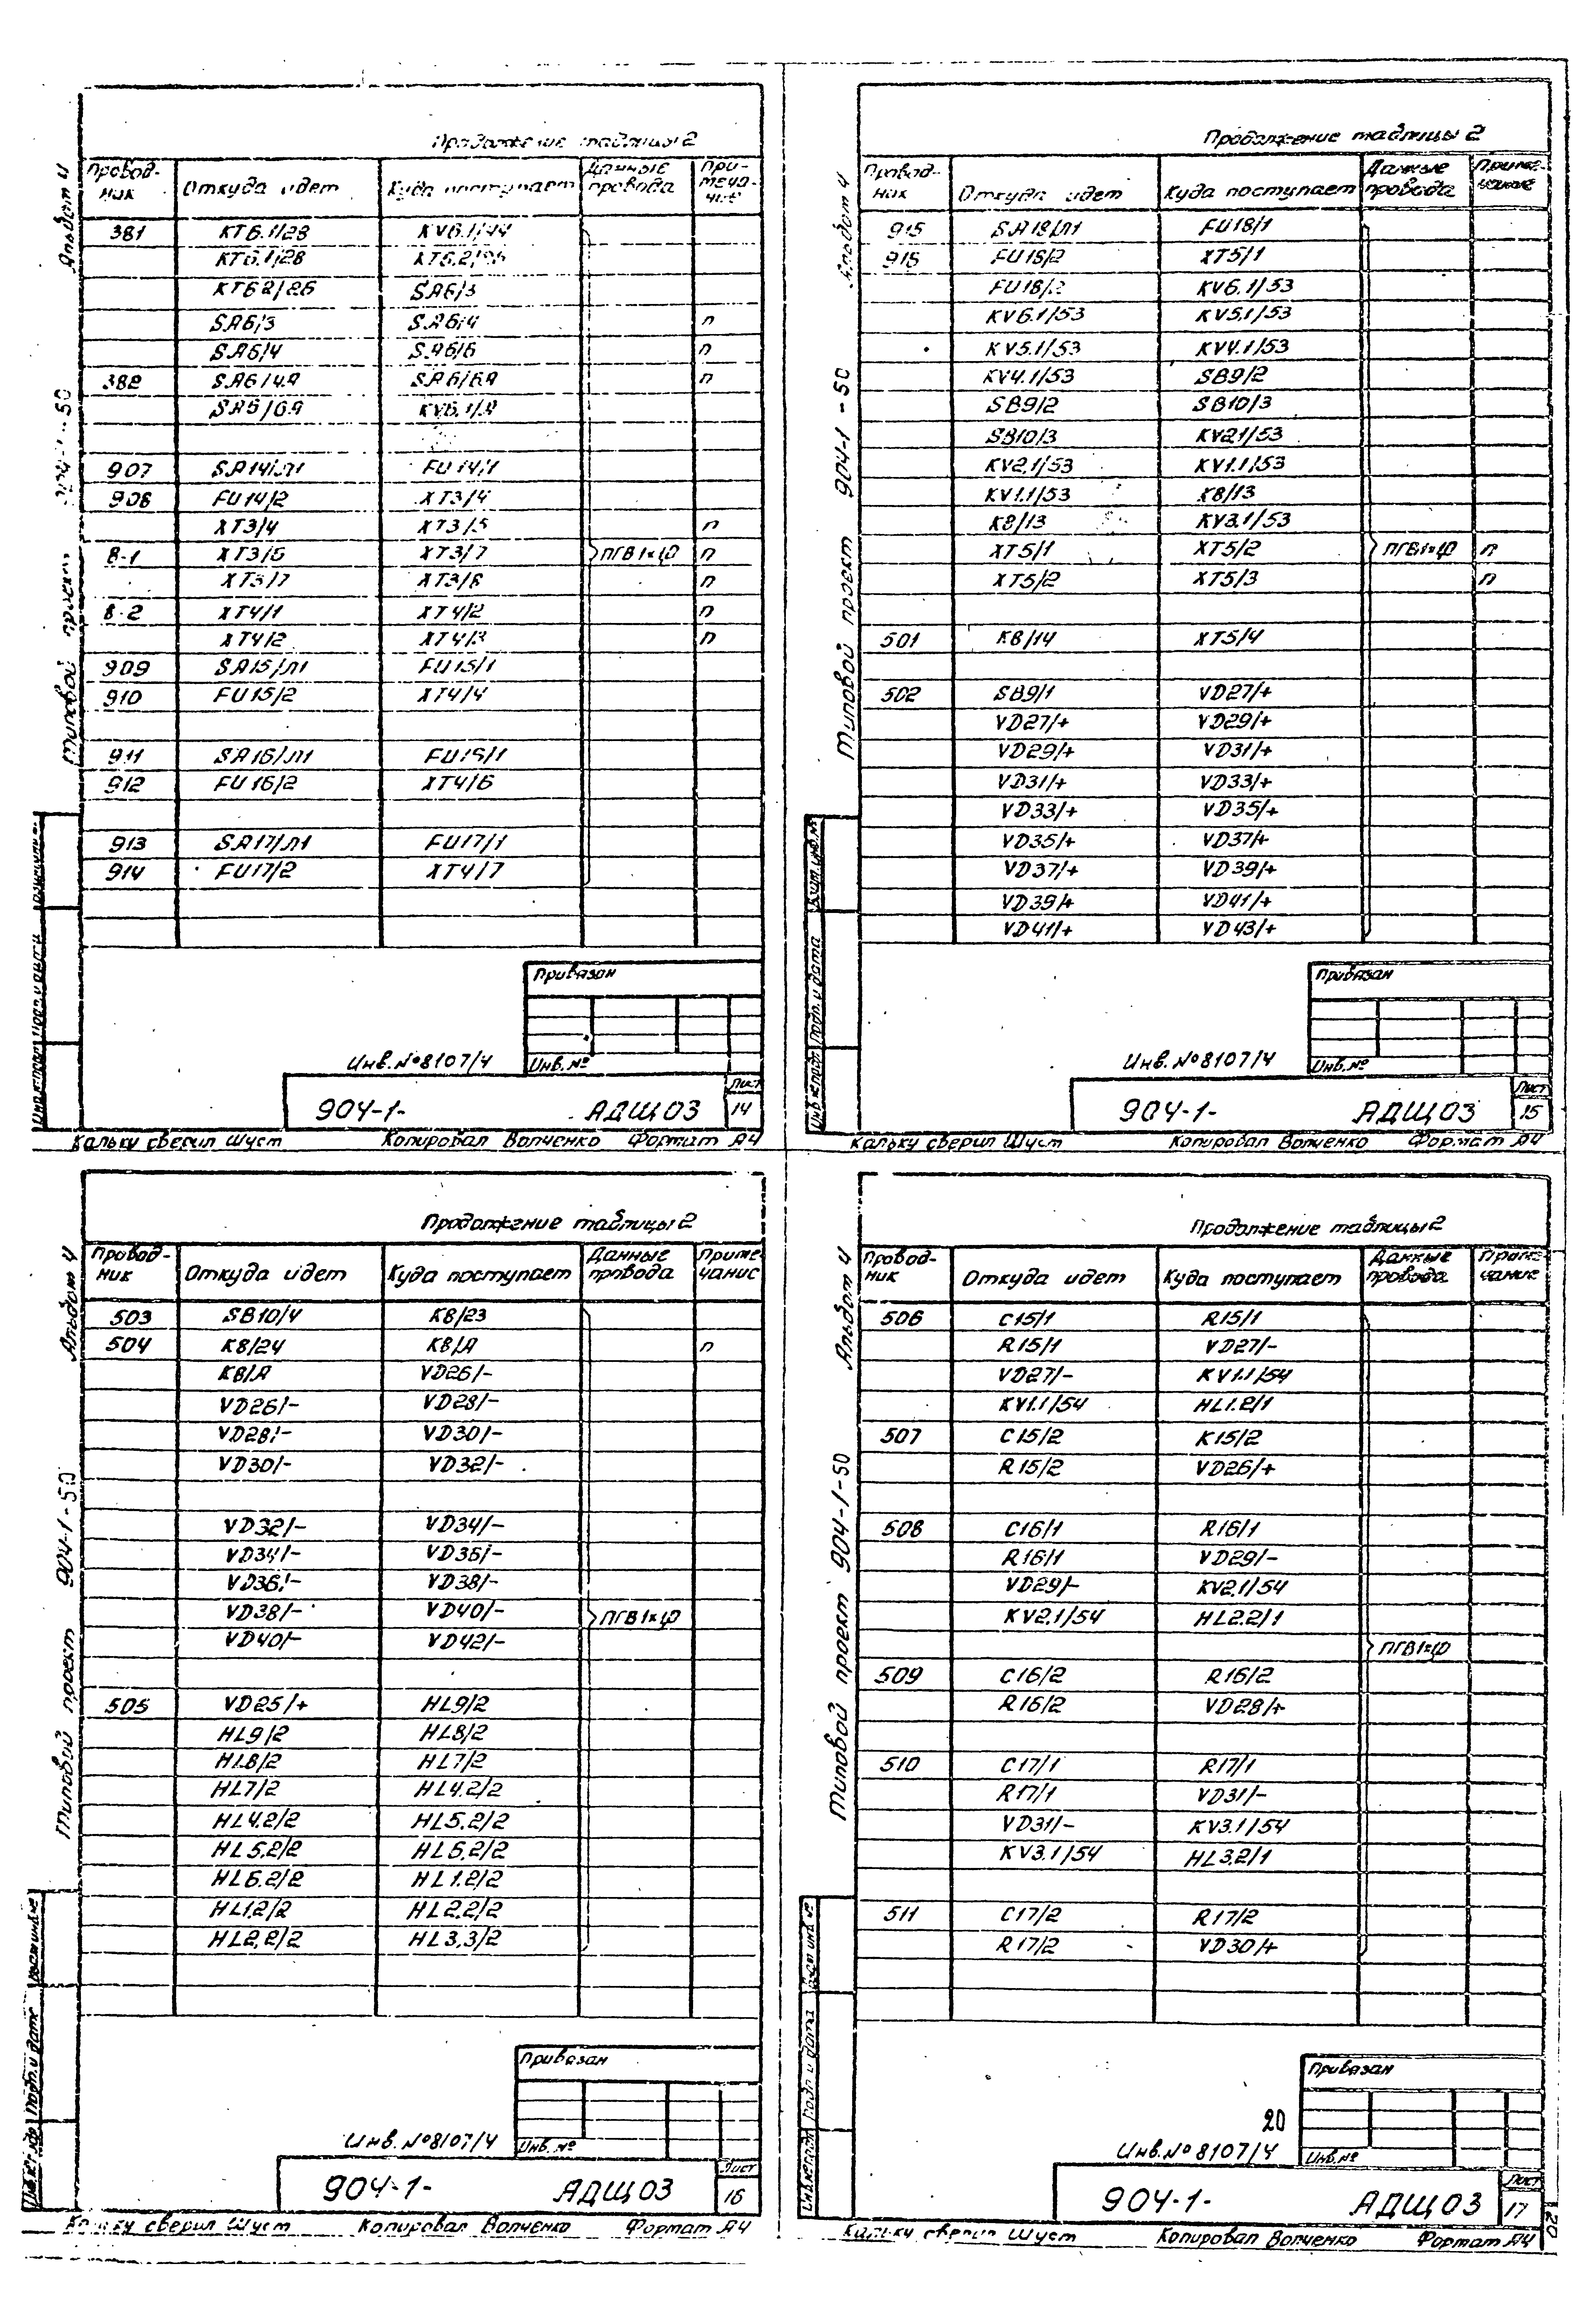 Продолжение таблицы 2
Провод-ник Откуда идет Куда поступает Данные провода При-меча-ние
381 КТ6.1/28 KV6.1/44
КТ6.1/28 КТ6.2/26
КТ6.2/26 SA6/3
SA6/3 SA6/4 п
SA6/4 SA6/6 п
382 SA6/4A SA6/6A п
SA6/6A KV6.1/A
907 SA14/Л1 FU14/1
908 FU14/2 XT3/4
XT3/4 XT3/5 п
8-1 XT3/6 XT3/7 ПГВ1×1,0 п
XT3/7 XT3/8 п
8-2 XT4/1 XT4/2 п
XT4/2 XT4/3 п
909 SA15/Л1 FU15/1
910 FU15/2 XT4/4
911 SA16/Л1 FU16/1
912 FU16/2 XT4/6
913 SA17/Л1 FU17/1
914 FU17/2 XT4/7
Альбом 4
904-1-50
Типовой проект
Привязан
Инв. №8107/4
Инв. №
904-1- АДЩ03
Лист
14
Кальку сверил Шуст Копировал Вопченко Формат А4
Продолжение таблицы 2
Провод-ник Откуда идет Куда поступает Данные провода Приме-чание
915 SA18/Л1 FU18/1
916 FU18/2 XT5/1
FU18/2 KV6.1/53
KV6.1/53 KV5.1/53
KV5.1/53 KV4.1/53
KV4.1/53 SB9/2
SB9/2 SB10/3
SB10/3 KV2.1/53
KV2.1/53 KV1.1/53
KV1.1/53 K8/13
K8/13 KV3.1/53
XT5/1 XT5/2 ПГВ1×1,0 п
XT5/2 XT5/3 п
501 K8/14 XT5/4
502 SB9/1 VD27/+
VD27/+ VD29/+
VD29/+ VD31/+
VD31/+ VD33/+
VD33/+ VD35/+
VD35/+ VD37/+
VD37/+ VD39/+
VD39/+ VD41/+
VD41/+ VD43/+
Альбом 4
Типовой проект 904-1-50
Подп. и дата
Привязан
Инв. №8107/4
Инв. №
904-1- АДЩ03
Лист
15
Кальку сверил Шуст Копировал Вопченко Формат А4
Продолжение таблицы 2
Провод-ник Откуда идет Куда поступает Данные провода Приме-чание
503 SB10/4 K8/23
504 K8/24 K8/A п
K8/A VD26/-
VD26/- VD28/-
VD28/- VD30/-
VD30/- VD32/-
VD32/- VD34/-
VD34/- VD36/-
VD36/- VD38/-
VD38/- VD40/- ПГВ1×1,0
VD40/- VD42/-
505 VD25/+ HL9/2
HL9/2 HL8/2
HL8/2 HL7/2
HL7/2 HL4.2/2
HL4.2/2 HL5.2/2
HL5.2/2 HL6.2/2
HL6.2/2 HL1.2/2
HL1.2/2 HL2.2/2
HL2.2/2 HL3.3/2
Альбом 4
Типовой проект 904-1-50
Подп. и дата
Привязан
Инв. №8107/4
Инв. №
904-1- АДЩ03
Лист
16
Кальку сверил Шуст Копировал Вопченко Формат А4
Продолжение таблицы 2
Провод-ник Откуда идет Куда поступает Данные провода Приме-чание
506 C15/1 R15/1
R15/1 VD27/-
VD27/- KV1.1/54
KV1.1/54 HL1.2/1
507 C15/2 K15/2
R15/2 VD26/+
508 C16/1 R16/1
R16/1 VD29/-
VD29/- KV2.1/54
KV2.1/54 HL2.2/1
ПГВ1×1,0
509 C16/2 R16/2
R16/2 VD28/+
510 C17/1 R17/1
R17/1 VD31/-
VD31/- KV3.1/54
KV3.1/54 HL3.2/1
511 C17/2 R17/2
R17/2 VD30/+
Альбом 4
Типовой проект 904-1-50
Подп. и дата
Привязан
20
Инв. №8107/4
Инв. №
904-1- АДЩ03
Лист
17
20
Кальку сверил Шуст Копировал Вопченко Формат А4